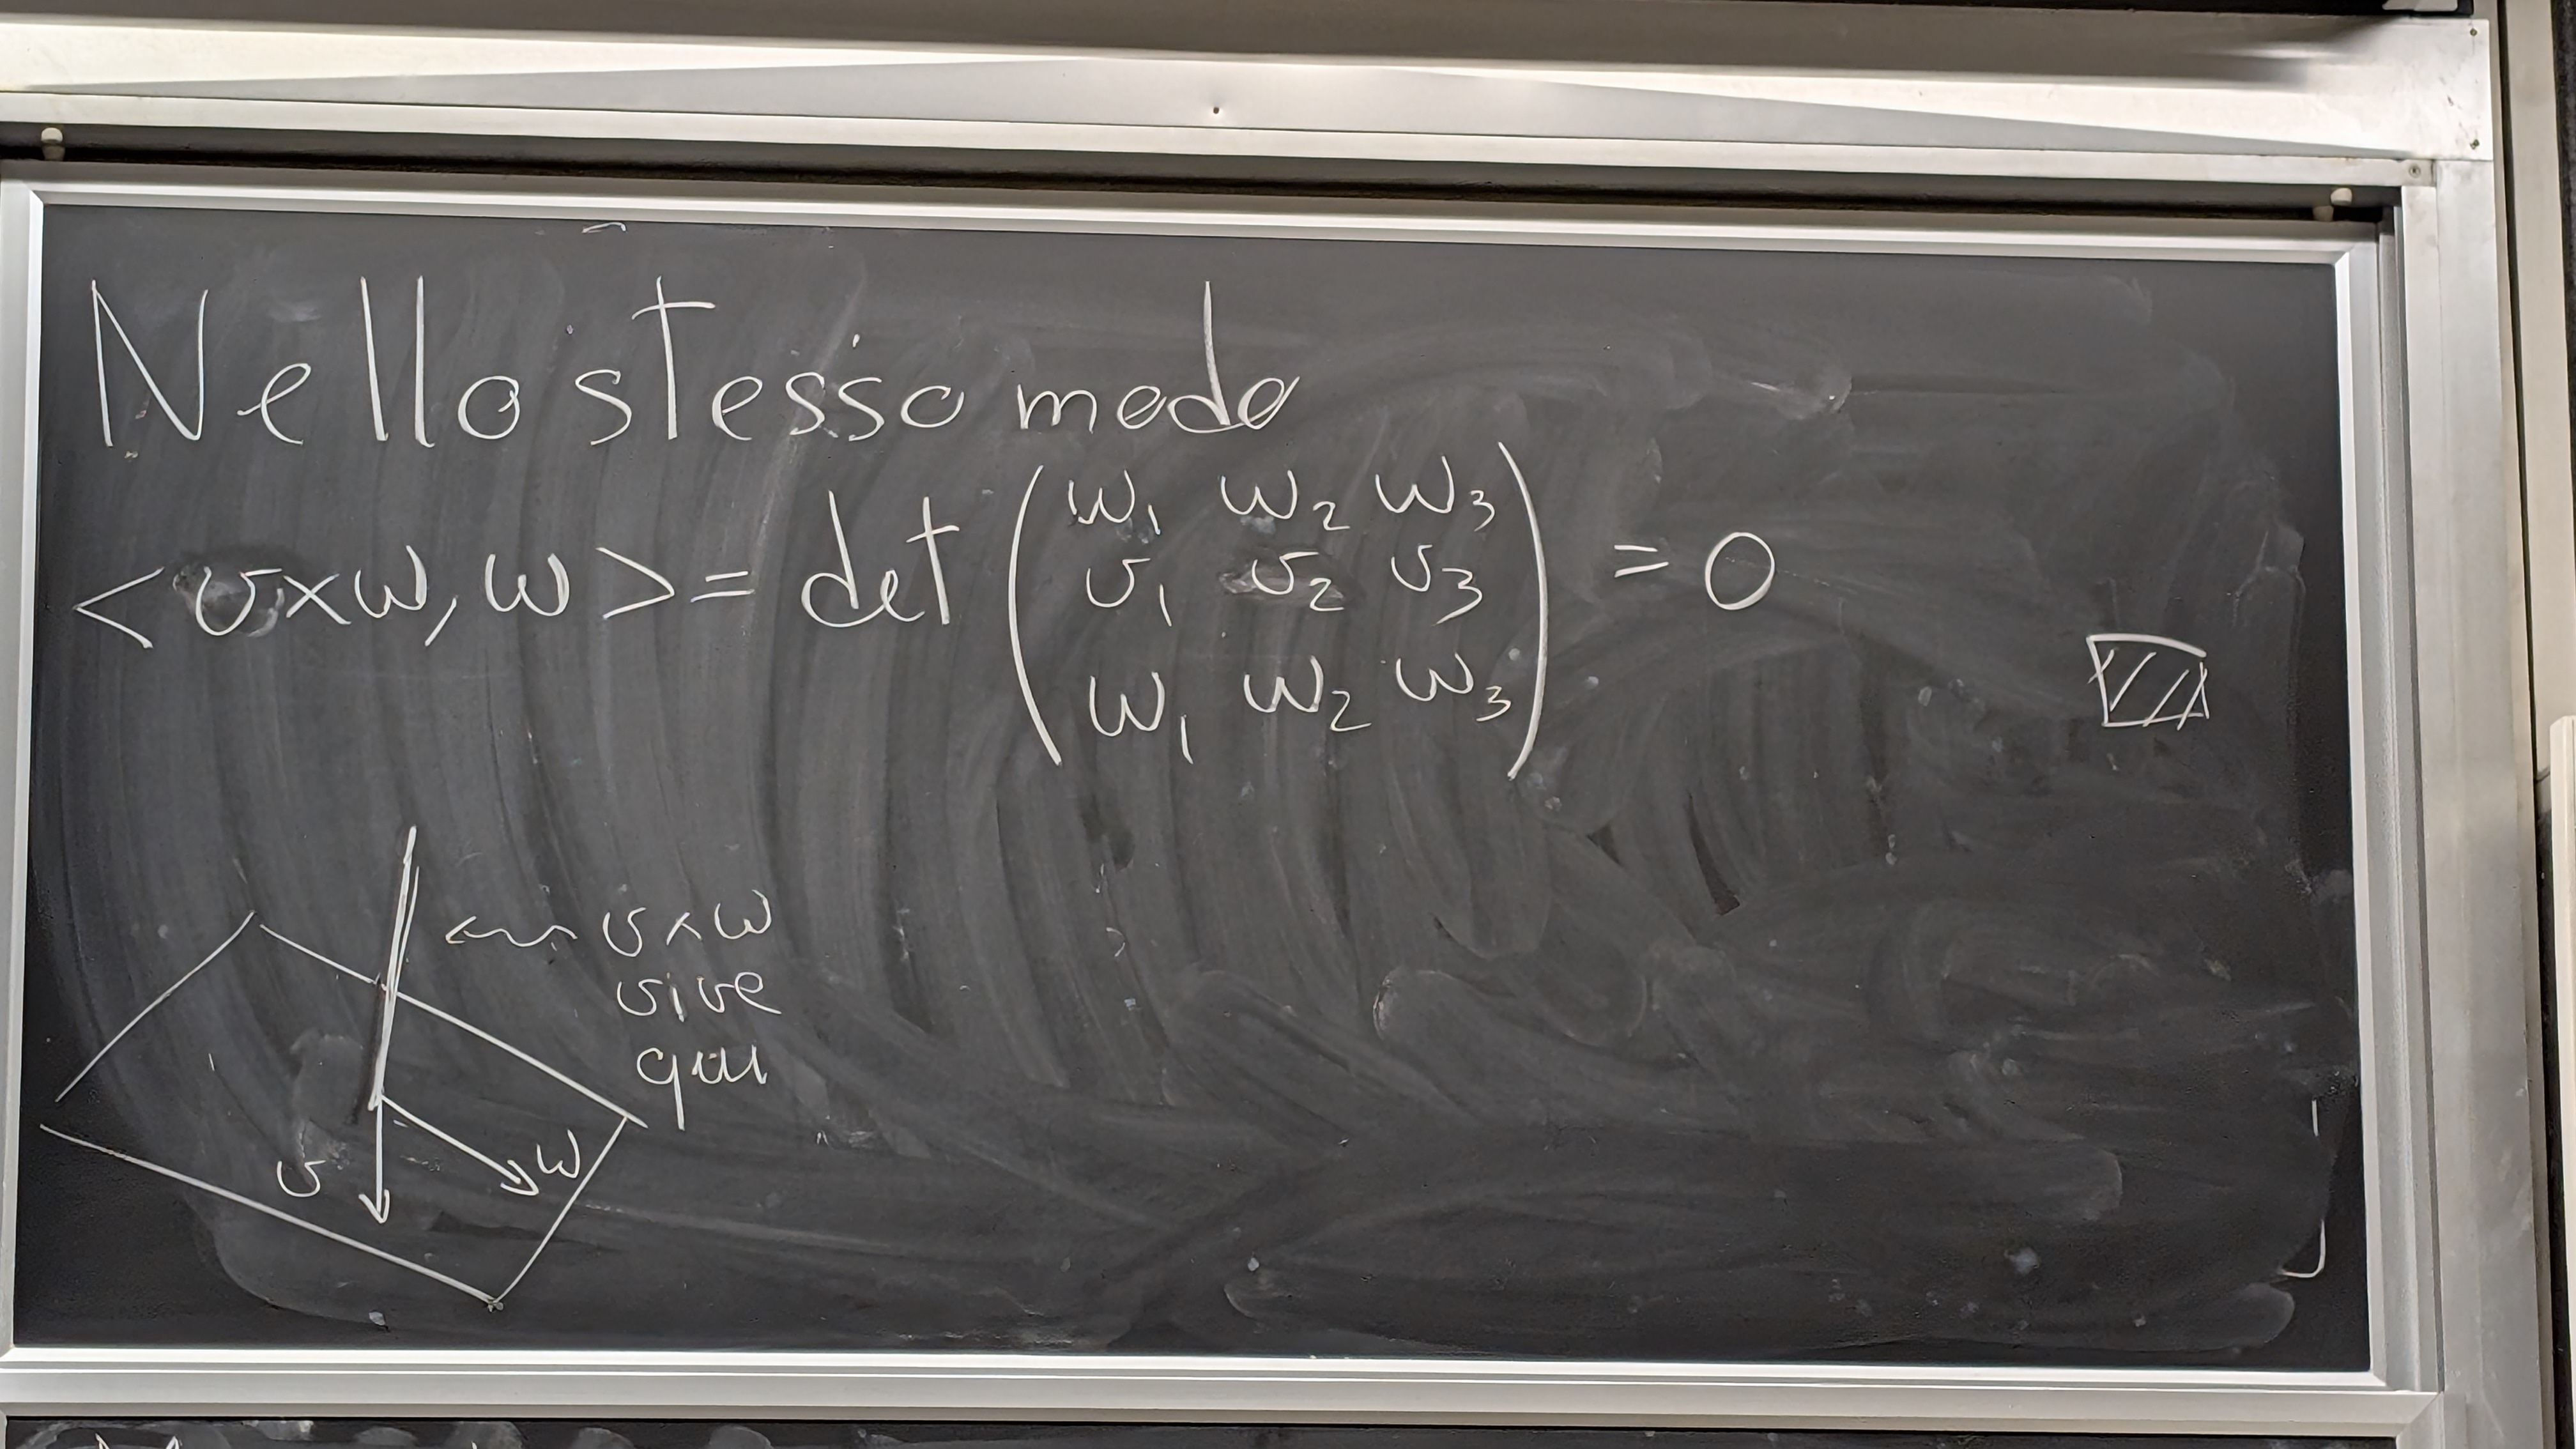 Nello stesso modo
<v×w, w> = det ( w₁ w₂ w₃
v₁ v₂ v₃
w₁ w₂ w₃ ) = 0
v×w
vive
qui
v
w